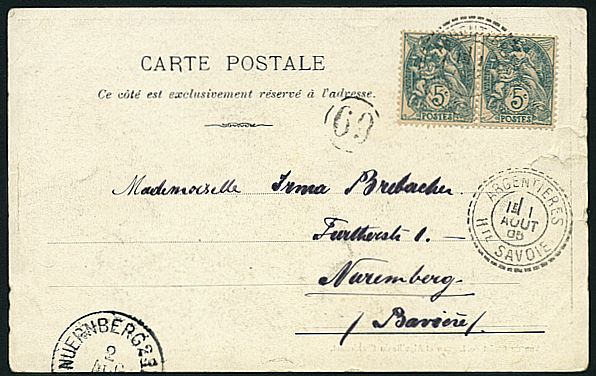 CARTE POSTALE
Ce côté est exclusivement réservé à l'adresse.
5c 5c
POSTES POSTES
69
Mademoiselle Irma Brebacher
Furtherstr 1.
Nuremberg
(Bavière)
ARGENTIÈRES
1
AOUT
05
HTE SAVOIE
NUERNBERG 2
2
AUG